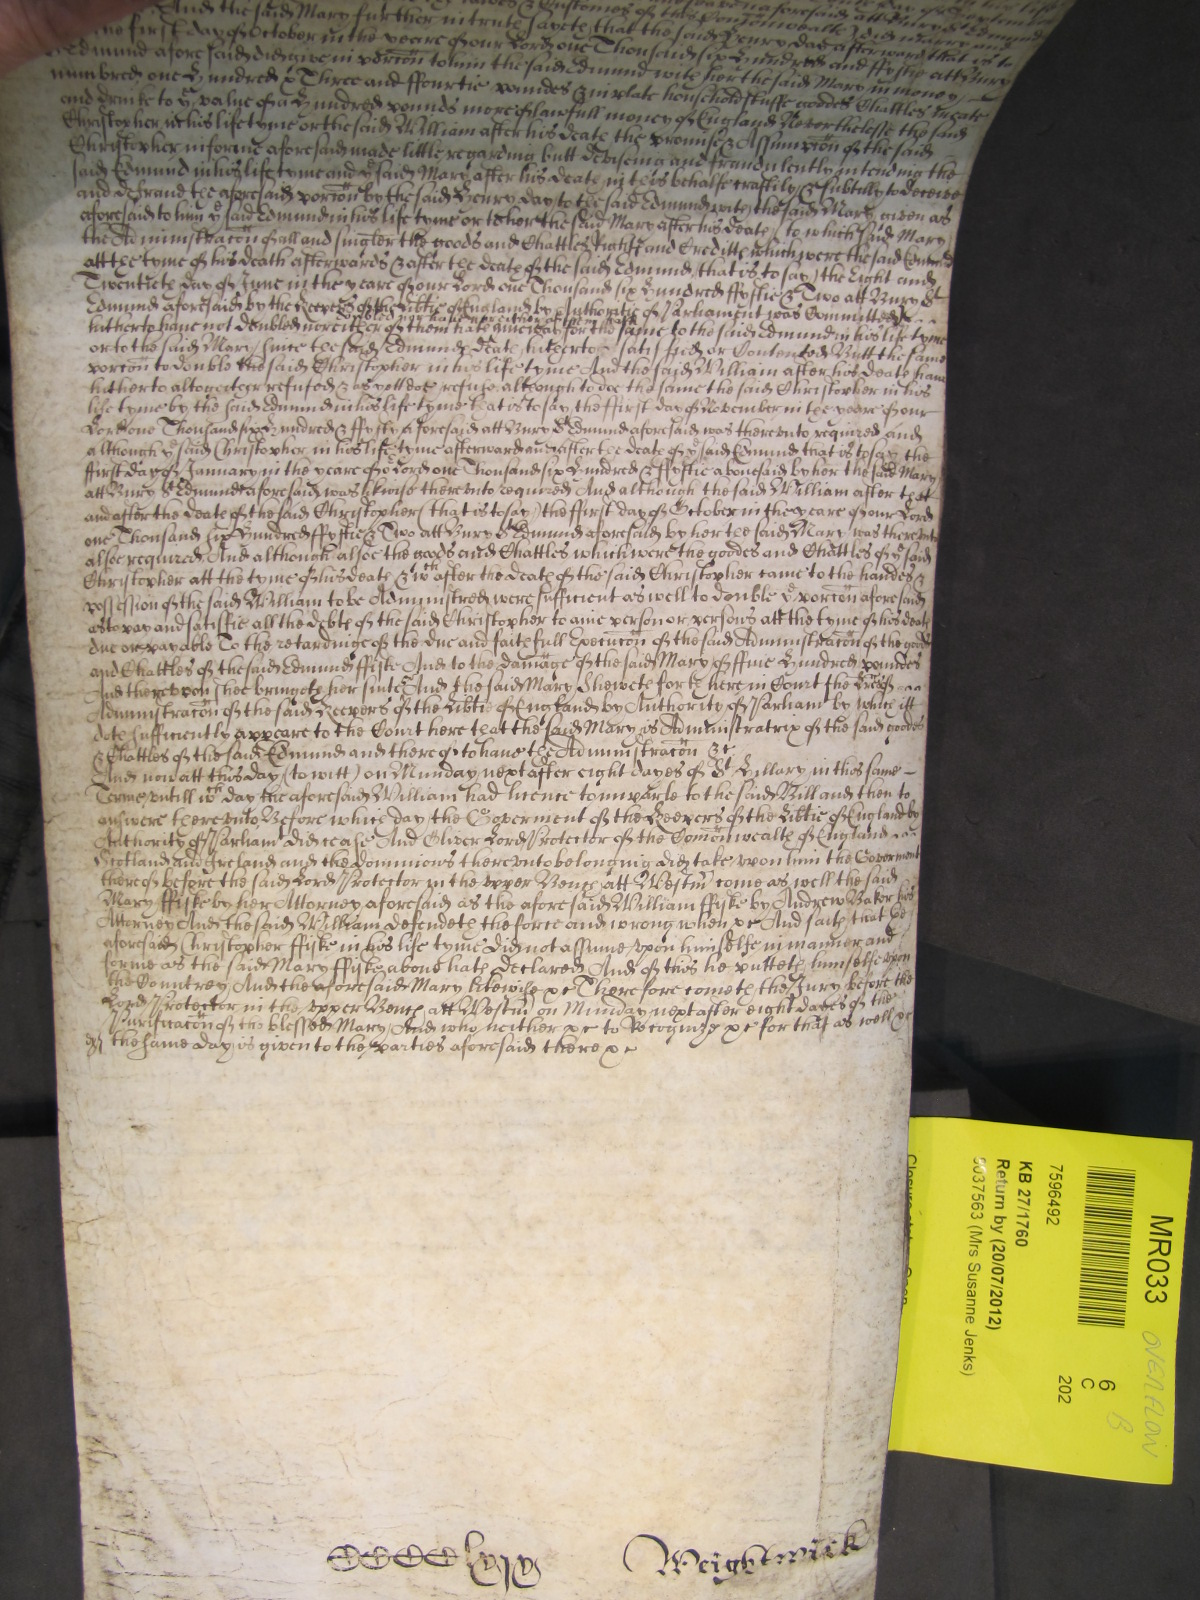 And the said Mary further in truth sayeth that the said Henry Day afterwards that is to
the first day of October in the yeare of our Lord one Thousand six hundred and ffyftie att Bury
Edmund aforesaid did give in porcōn to him the said Edmund with her the said Mary in money
numbred one Hundred & Three and ffourtie poundes & in plate household stuffe goodes Chattles breade
and drinke to yᵉ value of a Hundred pounds more of lawfull money of England Neverthelesse the said
Christopher in his life tyme or the said William after his death the promise & Assumpcōn of the said
Christopher in forme aforesaid made little regarding butt devising and fraudulently intending the
said Edmund in his life tyme and yᵉ said Mary after his death in this behalfe craftily & subtilly to deceive
and defraud the aforesaid porcōn by the said Henry Day to the said Edmund with the said Mary given as
aforesaid to him yᵉ said Edmund in his life tyme or to her the said Mary after his death / to which said Mary
the Administracōn of all and singler the goods and Chattles Rights and Creditts which were the said Edmund
att the tyme of his death afterwards & after the death of the said Edmund / that is to say / the Eight and
Twentieth day of June in the yeare of our Lord one Thousand six Hundred ffyftie & Two att Bury Sᵗ
Edmund aforesaid by the Keepers of the Libtie of England by Authoritie of Parliament was Committed
hitherto have not doubled nor either of them hath for the same to the said Edmund in his life tyme
or to the said Mary since the said Edmunds death hitherto satisfied or Contented Butt the same
porcōn to double the said Christopher in his life tyme And the said William after his death have
hitherto altogether refused & as yett doe refuse although to doe the same the said Christopher in his
life tyme by the said Edmund in his life tyme that is to say the ffirst day of November in the yeare of our
Lord one Thousand six Hundred & ffyfty aforesaid att Bury Sᵗ Edmund aforesaid was therevnto required And
although yᵉ said Christopher in his life tyme afterward and after the death of yᵉ said Edmund that is to say the
ffirst day of January in the yeare of oʳ Lord one Thousand six Hundred & ffyftie abovesaid by her the said Mary
att Bury Sᵗ Edmund aforesaid was likwise therevnto required And although the said William after that
and after the death of the said Christopher / that is to say / the ffirst day of October in the yeare of our Lord
one Thousand six Hundred ffyftie & Two att Bury Sᵗ Edmund aforesaid by her the said Mary was therevnto
alsoe required And although alsoe the goods and Chattles which were the goodes and Chattles of yᵉ said
Christopher att the tyme of his death & wᶜʰ after the death of the said Christopher came to the handes &
possession of the said William to be Administred were sufficient as well to double yᵉ porcōn aforesaid
as to pay and satisfie all the debts of the said Christopher to anie person or persons att the tyme of his death
due or payable To the retardinge of the due and faithfull Execucōn of the said Administracōn of the goods
and Chattles of the said Edmund ffiske And to the damage of the said Mary of ffive Hundred poundes
And therevpon shee bringeth her suite And the said Mary sheweth forth here in Court the Lrēs of
Administracōn of the said Keepers of the Libtie of England by Authority of Parliam̄t by which itt
doth sufficiently appeare to the Court here that the said Mary is Administratrix of the said goodes
& Chattles of the said Edmund and thereof to have the Administracōn &c
And now att this day (to witt) on Munday next after eight dayes of Sᵗ Hillary in this same
Terme vntill wᶜʰ day the aforesaid William had licence to imparle to the said Bill and then to
answere therevnto Before which day the Goverment of the Keepers of the Libtie of England by
Authority of Parliam̄t did cease And Oliver Lord Protector of the Com̄onwealth of England
Scotland and Ireland and the dominions therevnto belonging did take vpon him the Goverment
thereof before the said Lord Protector in the vpper Bench att Westm̄ come as well the said
Mary ffiske by her Attorney aforesaid as the aforesaid William ffiske by Andrew Baker his
Attorney And the said William defendeth the force and wrong when &c And saith that the
aforesaid Christopher ffiske in his life tyme did not assume vpon himselfe in manner and
forme as the said Mary ffiske above hath declared And of this he putteth himselfe vpon
the Countrey And the aforesaid Mary likewise &c Therefore cometh the Jury before the
Lord Protector in the vpper Bench att Westm̄ on Munday next after eight dayes of the
Purificacōn of the blessed Mary And who neither &c to Recognize &c for that as well &c
the same day is given to the parties aforesaid there &c
Weightwick
MR033
OVERFLOW
B
6
C
202
7596492
KB 27/1760
Return by (20/07/2012)
5037563 (Mrs Susanne Jenks)